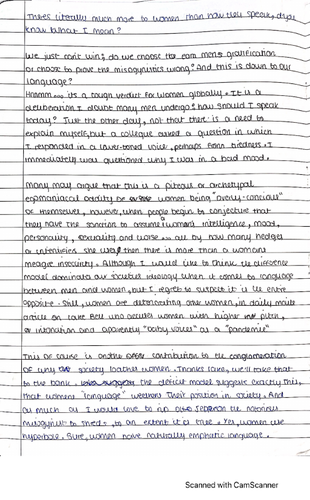 There's literally much more to women than how they speak, d'you
know what I mean?
We just can't win; do we choose to earn men's gratification
or choose to prove the misogynistics wrong? And this is down to our
language?
Hmmm... its a tough verdict for women globally. It is a
deliberation I doubt many men undergo: how should I speak
today? Just the other day, not that there is a need to
explain myself, but a collegue asked a question in which
I responded in a lower-toned voice, perhaps from tiredness. I
immediately was questioned why I was in a bad mood.
Many may argue that this is a or archetypal
egomaniacal oddity of women being "overly-concious"
of themselves, however, when people begin to conjecture that
they have the sanction to assume womens intelligence, mood,
personality, sexuality and worse... all by how many hedges
or intensifiers she uses then this is more than a womans
meagre insecurity. Although I would like to think the difference
model dominates our societal ideology when it comes to language
between men and women, but I regret to suspect it is the entire
opposite. Still, women are deteriorating other women, in daily mails
article on Kate Bell who accuses women with higher pitch,
or intonation and apparently "baby voices" as a "pandemic"
This of cause is another contribution to the conglomeration
of why society loathes women. Thanks Kate, we'll take that
to the bank. the deficit model suggests exactly this,
that womens "language" weakens their position in society. And
as much as I would love to rip the notorious
misogynist to shreds, to an extent it is true. Yes, women use
hyperbole. Sure, women have naturally emphatic language.
Scanned with CamScanner